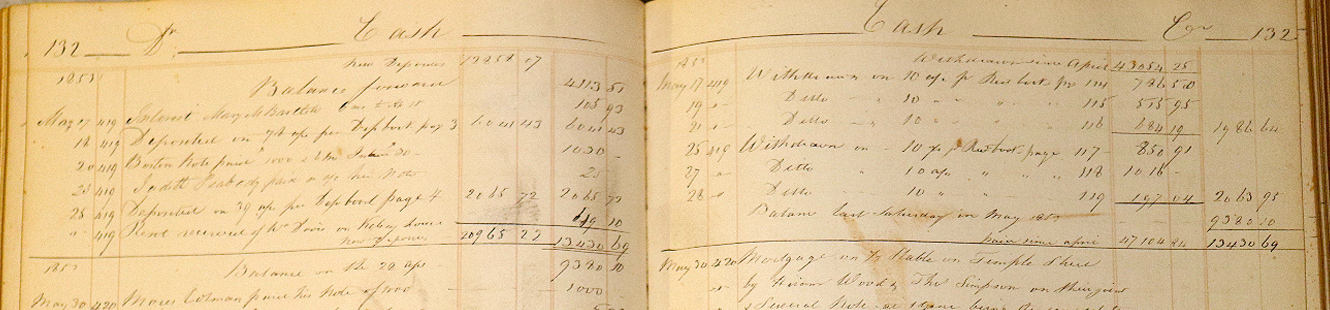 132 Dr. Cash
New Deposites
1853 Balance forward 4113 51
May 17 419 Interest Mary 105 93
18 419 Deposited on per Dep book page 3 6041 43 6041 43
20 419 Boston Note paid 1000 & 6 Mo Int 30 1030 -
23 419 Judith Peabody paid on her Note
25 419 Deposited on 39 per Dep book page 4 2065 72 2065 72
" 419 Rent received of Wm Davis on House 10
New Deposites 13430 69
1853 Balance on the 28 9380 10
May 30 420 Moses Colman paid his Note of 1000 1000 -
Cash Cr 132
1853 Withdrawn since April 43054 25
May 17 419 Withdrawn on 10 pr Red book pa 114 786 50
19 " Ditto 10 " " " 115 515 95
21 " Ditto 10 " " " 116 684 19 1986 64
25 419 Withdrawn on 10 pr Red book page 117 - 850 91
27 " Ditto " 10 " " " 118 1016 -
28 " Ditto " 10 " 119 197 04 2063 95
Balance last Saturday in May 1853 9380 10
paid since april 47104 84 13430 69
May 30 420 Mortgage on Stable on Temple Street
by Hiram Wood & Simpson on their joint
& Several Note